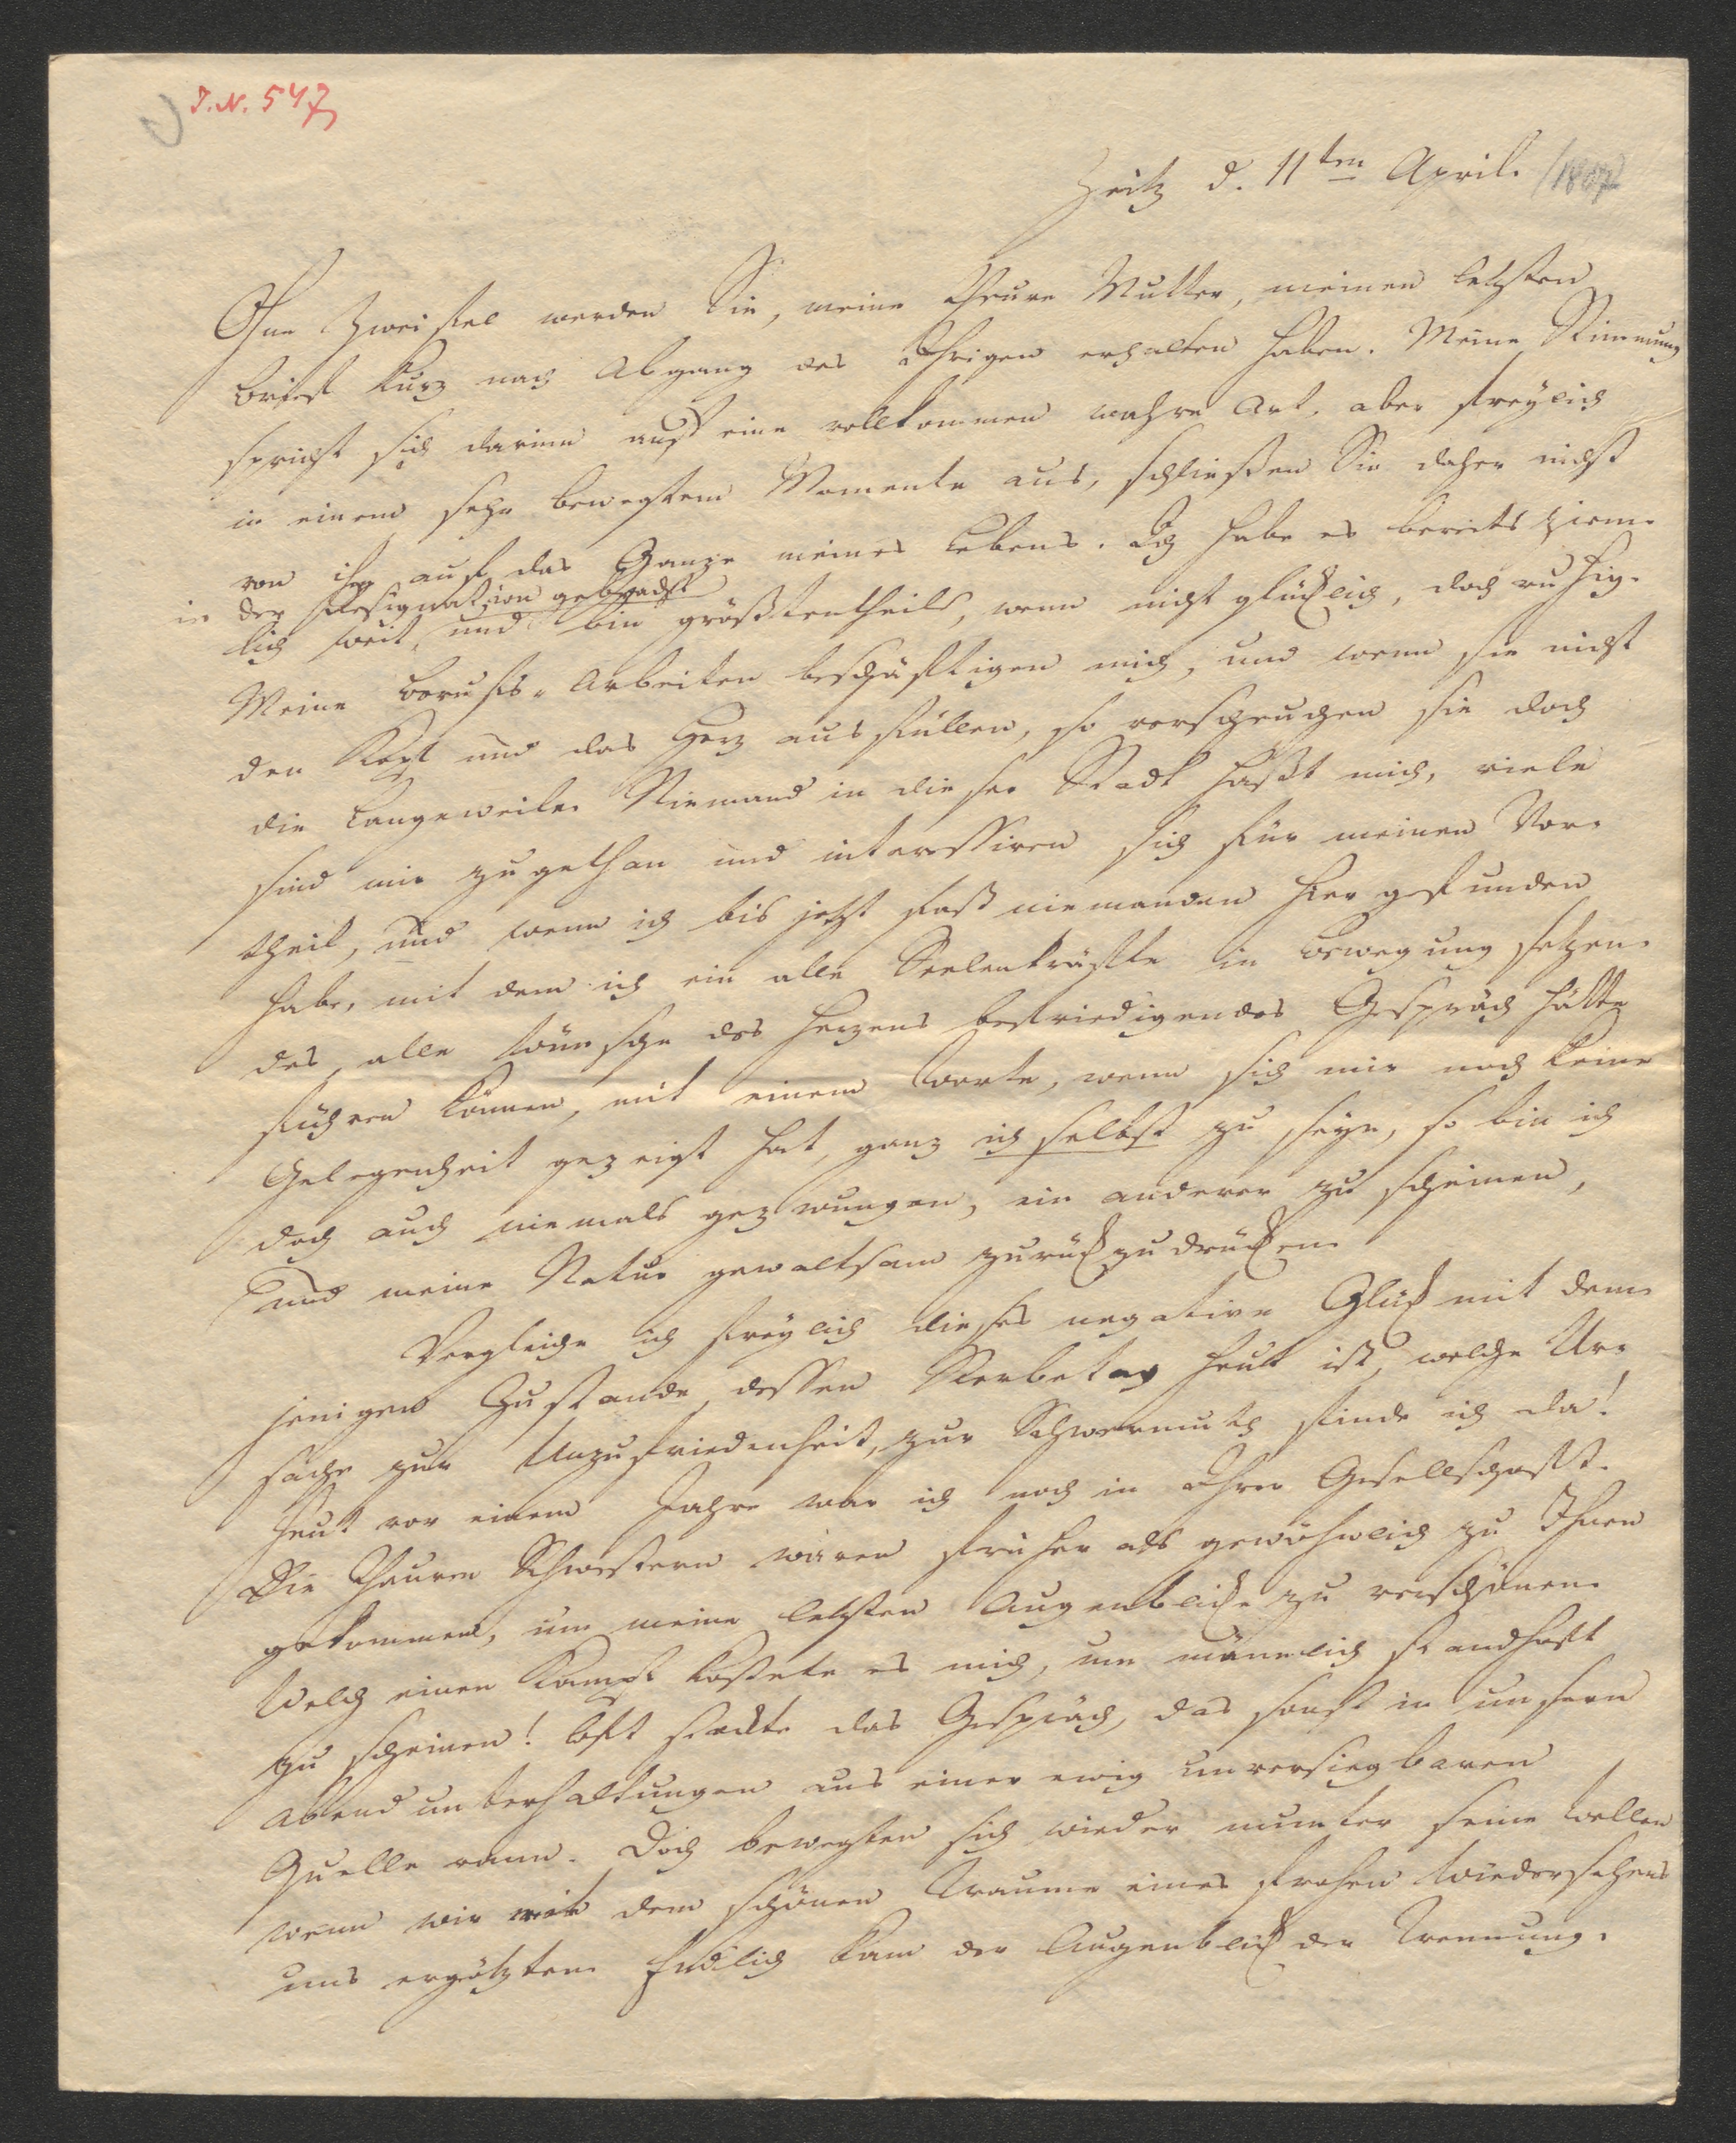 J.N. 547
Zeitz d. 11ten April. /1807
Ohne Zweifel werden Sie, meine theure Mutter, meinen letzten
Brief kurz nach Abgang des Ihrigen erhalten haben. Meine Stimmung
spricht sich darinn auf eine vollkommen wahre Art, aber freylich
in einem sehr bewegten Momente aus, schließen Sie daher nicht
von ihr auf das Ganze meines Lebens. Ich habe es bereits ziem-
in der Resignation gebracht
lich weit, und bin größtentheils, wenn nicht glücklich, doch ruhig.
Meine Berufs-Arbeiten beschäftigen mich, und wenn sie nicht
den Kopf und das Herz ausfüllen, so verscheuchen sie doch
die Langeweile. Niemand in dieser Stadt haßt mich, viele
sind mir zugethan und interessiren sich für meinen Vor-
theil, und wenn ich bis jetzt fast niemanden hier gefunden
habe, mit dem ich ein alle Seelenkräfte in Bewegung setzen-
des, alle Wünsche des Herzens befriedigendes Gespräch hätte
führen können, mit einem Worte, wenn sich mir noch keine
Gelegenheit gezeigt hat, ganz ich selbst zu seyn, so bin ich
doch auch niemals gezwungen, ein anderer zu scheinen,
und meine Natur gewaltsam zurückzudrücken.
Vergleiche ich freylich dieses negative Glück mit dem-
jenigen Zustande, dessen Sterbetag heut ist, welche Ur-
sache zur Unzufriedenheit, zur Schwermuth finde ich da!
Heut vor einem Jahre war ich noch in Ihrer Gesellschaft.
Die theuren Schwestern waren früher als gewöhnlich zu Ihnen
gekommen, um meine letzten Augenblicke zu verschönen.
Welch einen Kampf kostete es mich, um männlich standhaft
zu scheinen! Oft stockte das Gespräch, das sonst in unsern
Abendunterhaltungen aus einer ewig unversiegbaren
Quelle rann. Doch bewegten sich wieder munter seine Wellen
wenn wir mit dem schönen Traume eines frohen Wiedersehens
uns ergötzten. Endlich kam der Augenblick der Trennung.